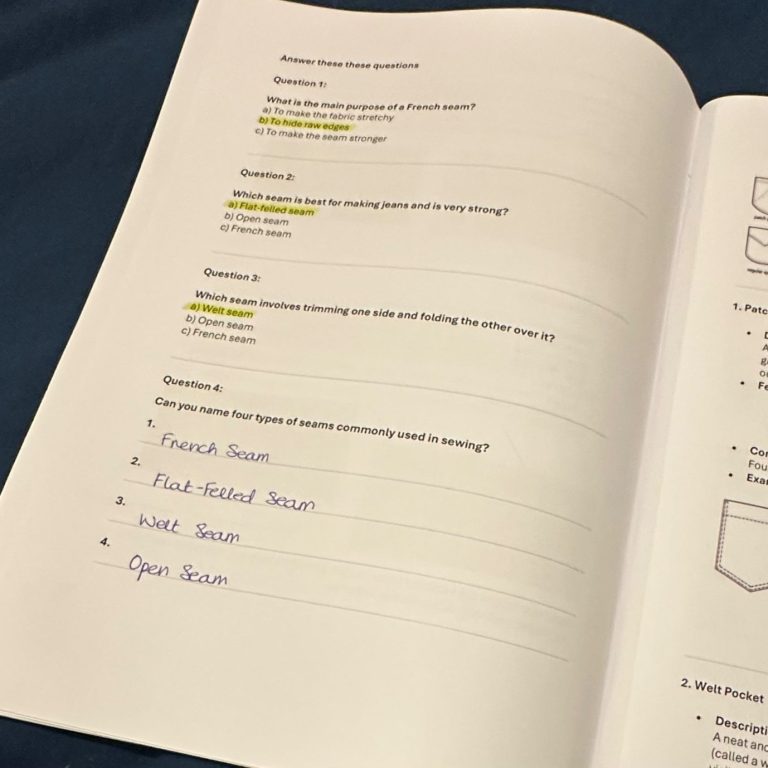 Answer these these questions
Question 1:
What is the main purpose of a French seam?
a) To make the fabric stretchy
b) To hide raw edges
c) To make the seam stronger
Question 2:
Which seam is best for making jeans and is very strong?
a) Flat-felled seam
b) Open seam
c) French seam
Question 3:
Which seam involves trimming one side and folding the other over it?
a) Welt seam
b) Open seam
c) French seam
Question 4:
Can you name four types of seams commonly used in sewing?
1.
French Seam
2.
Flat-Felled Seam
3.
Welt Seam
4.
Open Seam
1. Patc
Fe
Fou
Exa
2. Welt Pocket
Descripti
A neat and
(called a w